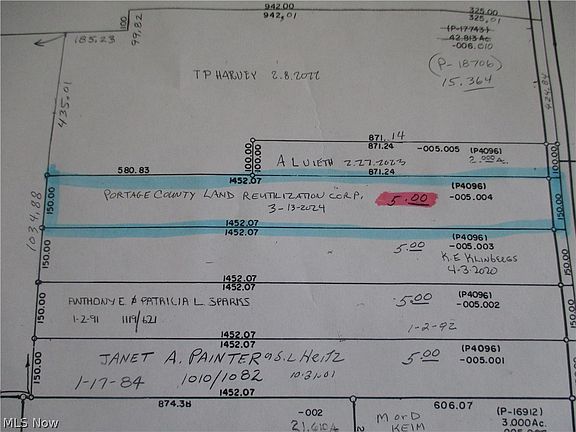 942.00
942,01
325.00
325,01
100
99,82
185.23
(P-17743)
42.813 Ac
-006.010
(P-18706)
15.364
T P HARVEY 2.8.2022
435.01
424.84
871.14
871.24
-005.005 (P4096)
100.00
A L VIETH 2.27.2023
2.00 A.
100.00
580.83
871.24
1452.07
(P4096)
150.00
PORTAGE COUNTY LAND REUTILIZATION CORP.
5.00
-005.004
150.00
3-13-2024
1034.88
1452.07
1452.07
(P4096)
150.00
5.00
-005.003
150.00
K.E KLINBERGS
4-3.2020
1452.07
(P4096)
150.00
ANTHONY E & PATRICIA L. SPARKS
5.00
-005.002
150.00
1-2-91 1119/621
1-2-92
1452.07
(P4096)
150.00
JANET A. PAINTER & S. L Heitz
5.00
-005.001
150.00
1-17-84 1010/1082 10.31.01
1452.07
874.38
606.07
-002
(P-16912)
M or D
3.000Ac.
KEIM
MLS Now